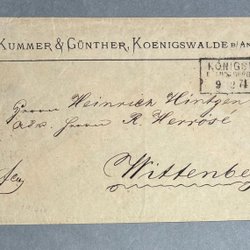 KUMMER & GÜNTHER, KOENIGSWALDE B/AN
KÖNIGS
9 2 7
Herrn Heinrich Hintgen
Adr. Herrn R. Herrosé
Wittenbe